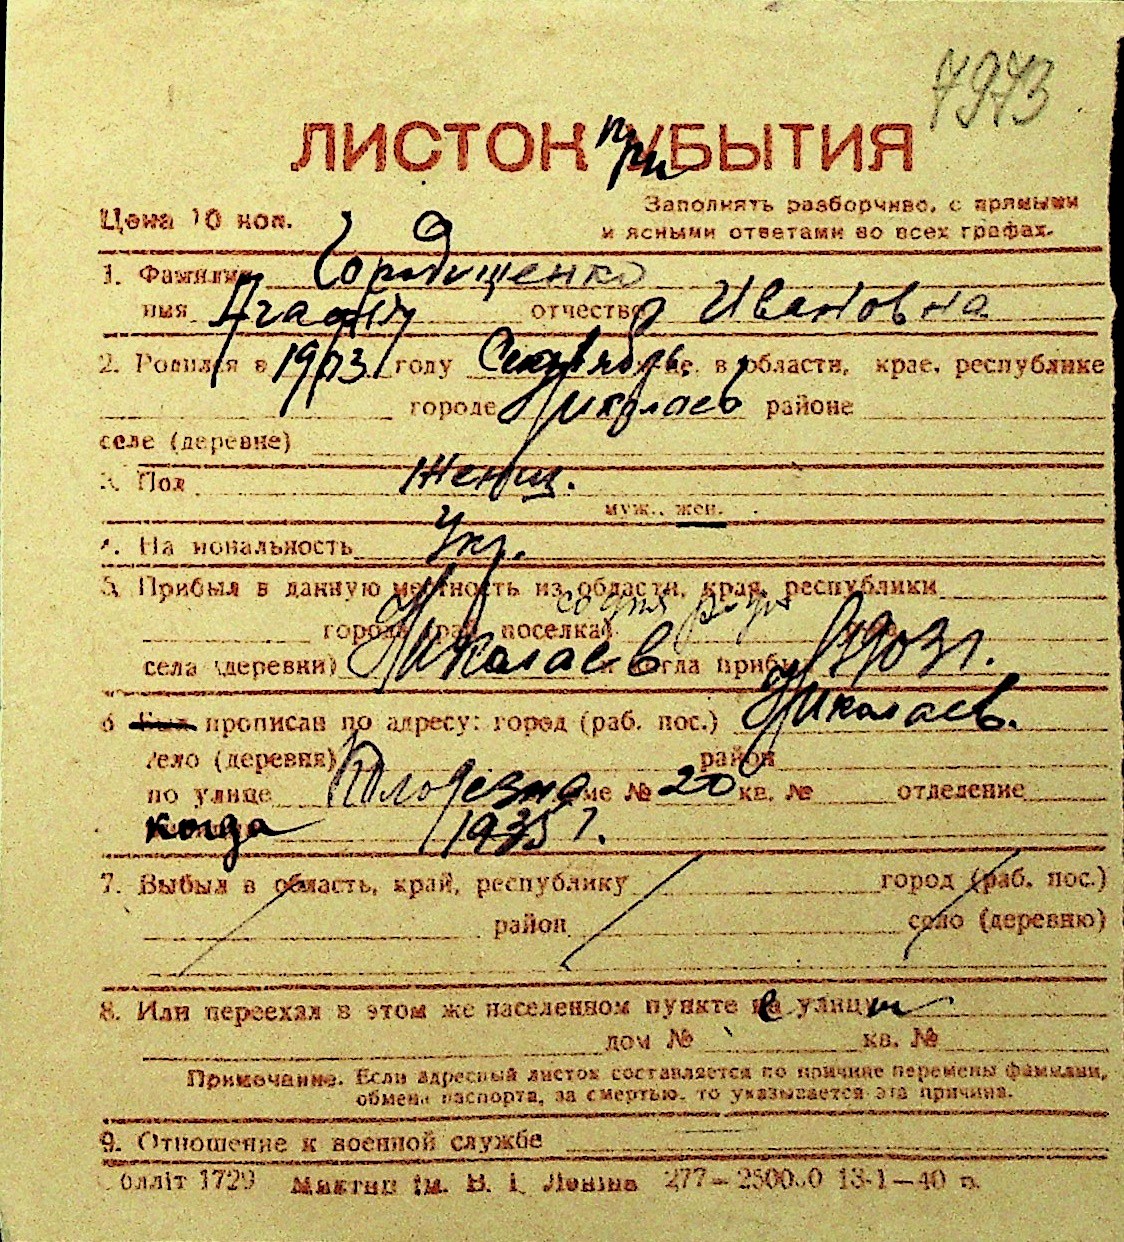 7973
ЛИСТОК при УБЫТИЯ
Цена 10 коп.
Заполнять разборчиво, с прямыми
и ясными ответами во всех графах.
1. Фамилия Городищенко
имя Агафия отчество Ивановна
2. Родился в 1903 году Сентябрь в области, крае, республике
городе Николаев районе
селе (деревне)
3. Пол Женщ.
муж., жен.
4. Национальность Укр.
5. Прибыл в данную местность из области, края, республики
со дня рожд
города (раб. поселка)
села (деревни) Николаев и когда прибыл 1903 г.
6 Был прописан по адресу: город (раб. пос.) Николаев.
село (деревня) район
по улице доме № 20 кв. № отделение
когда 1935 г.
7. Выбыл в область, край, республику город (раб. пос.)
район село (деревню)
8. Или переехал в этом же населенном пункте с улицы
дом № кв. №
Примечание. Если адресный листок составляется по причине перемены фамилии,
обмена паспорта, за смертью, то указывается эта причина.
9. Отношение к военной службе
Облліт 1729 ім. В. І. Леніна 277— 13-1—40 р.